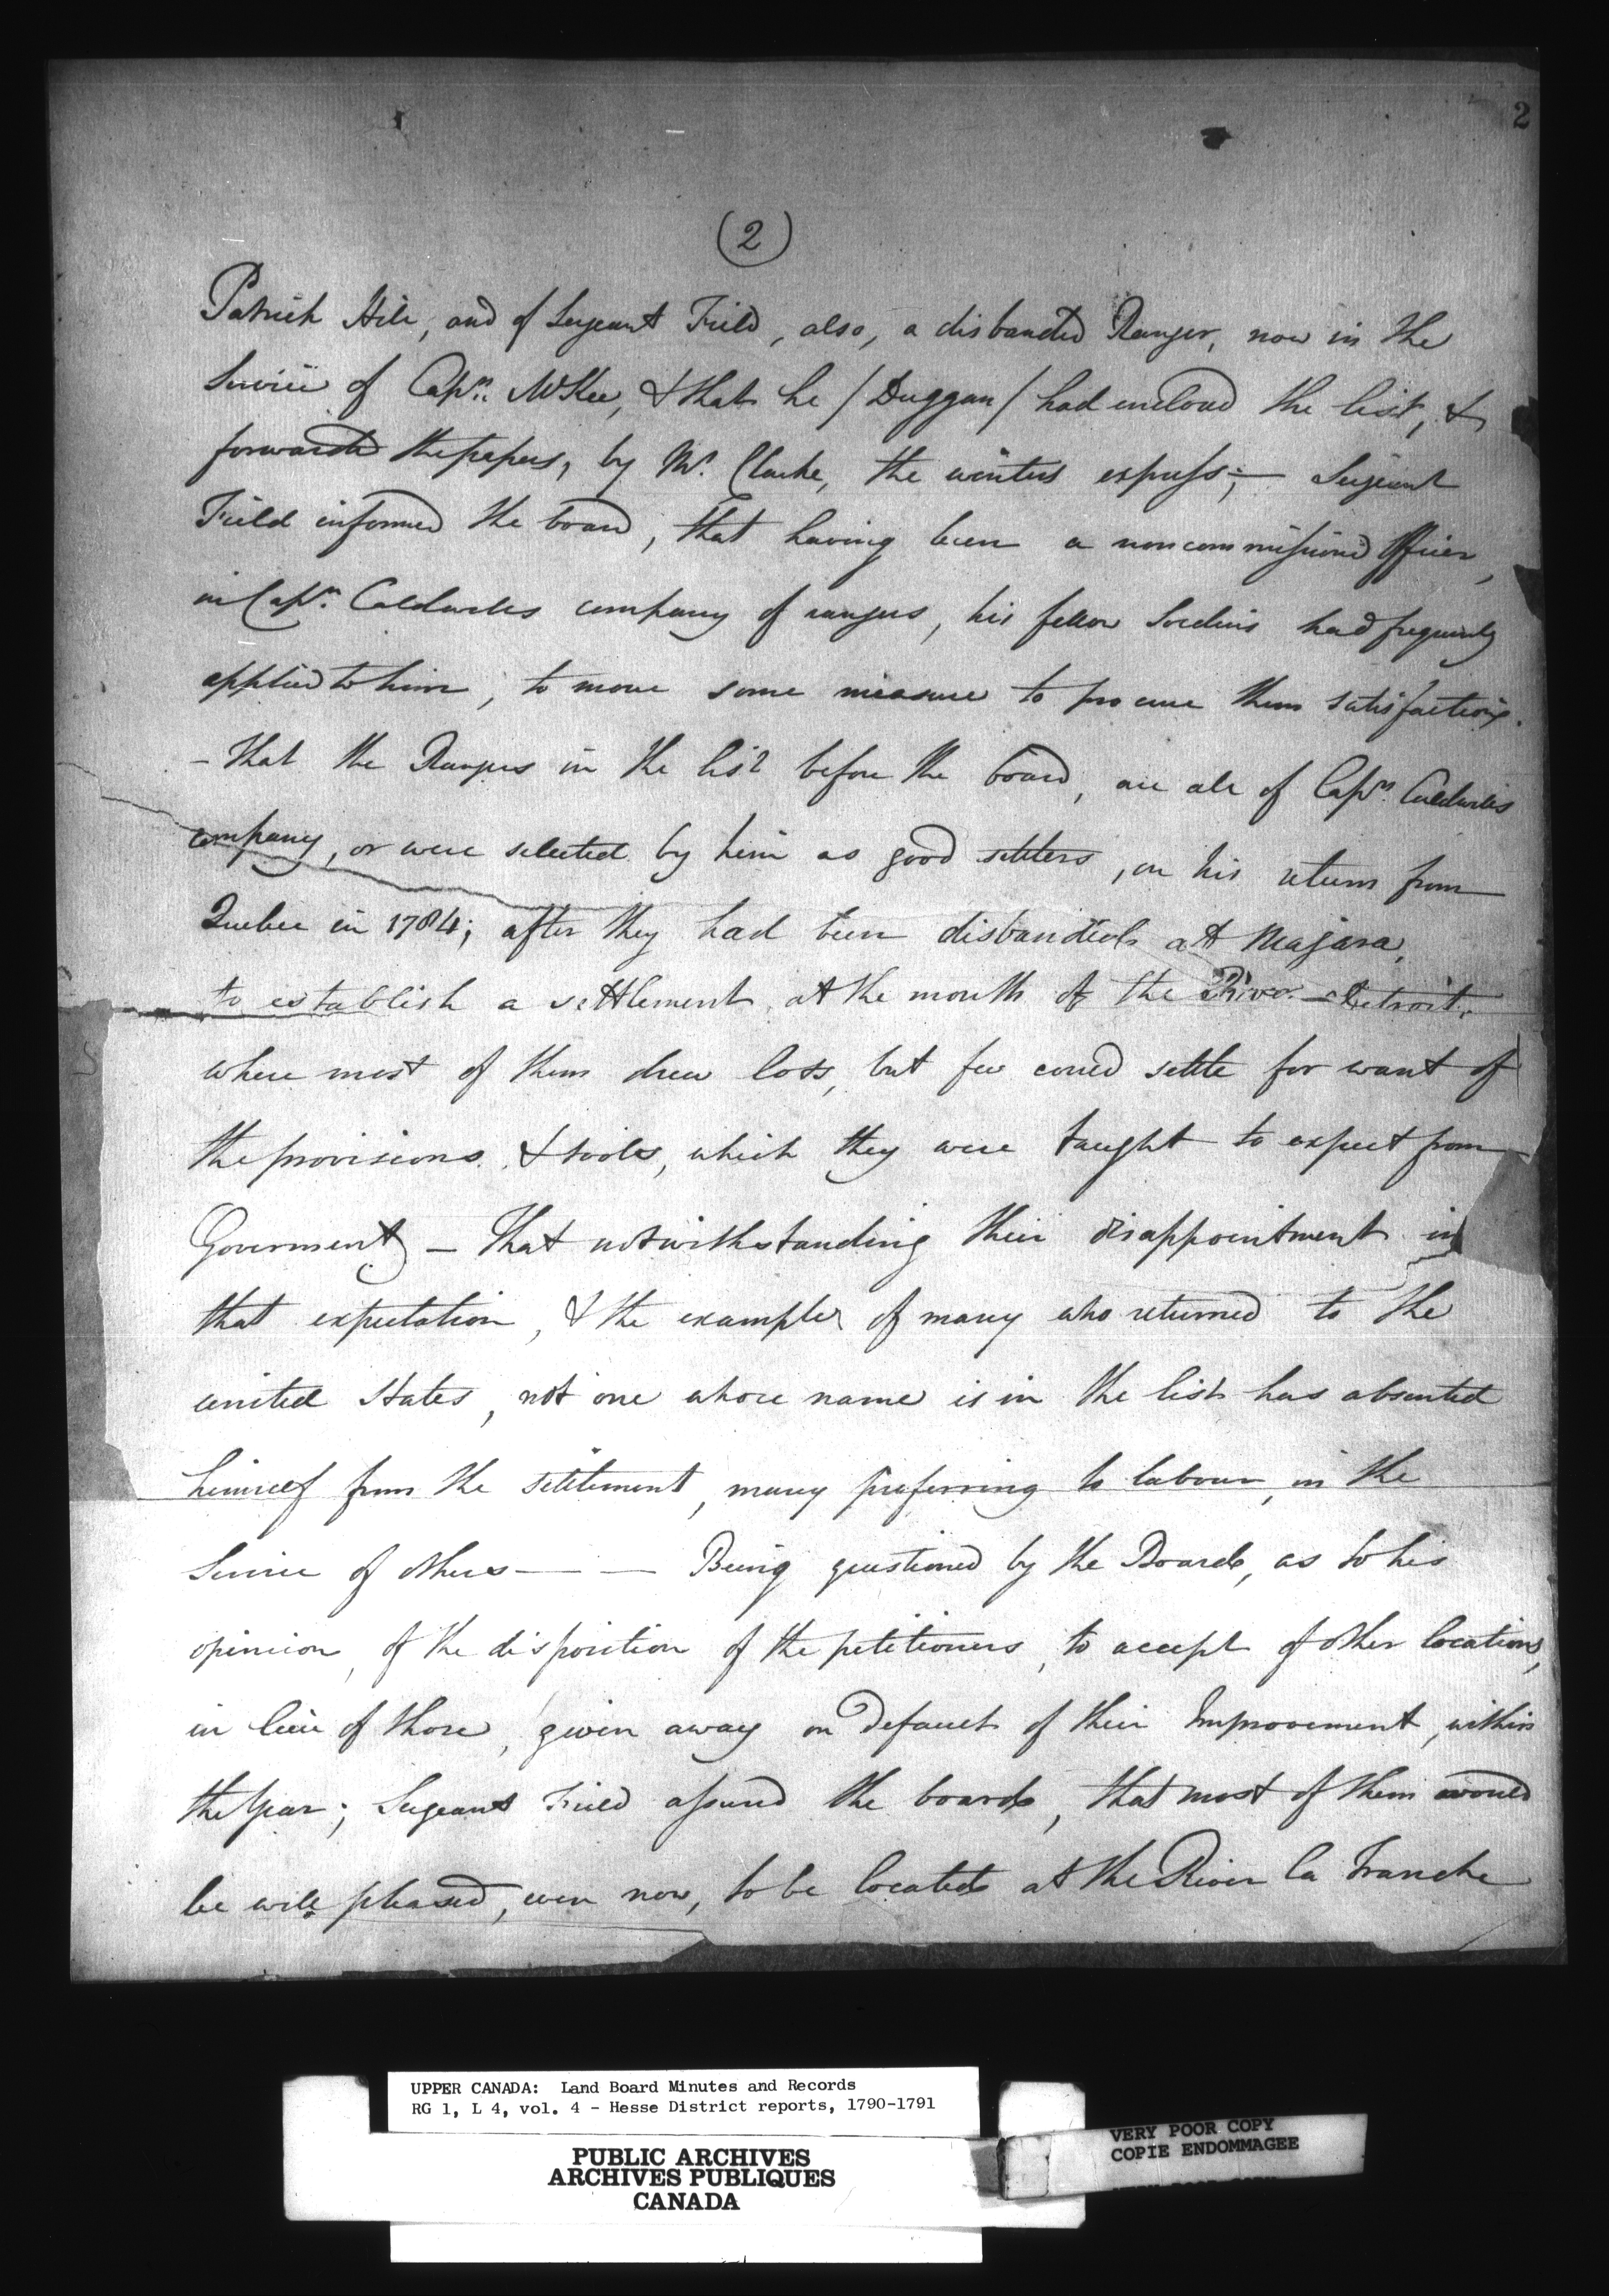 2
(2)
Patrick Hill, and of Sergeant Field, also, a disbanded Ranger, now in the
Service of Capn. McKee, & that he / Duggan / had enclosed the list, &
forwarded the papers, by Mr. Clarke, the winters express; — Serjeant
Field informed the board, that having been a noncommissioned Officer,
in Capn. Caldwells company of rangers, his fellow Soldiers had frequently
applied to him, to move some measure to procure them satisfaction.
- that the Rangers in the list before the board, are all of Capn. Caldwells
company, or were selected by him as good settlers, on his return from
Quebec in 1784; after they had been disbanded at Niagara,
to establish a settlement at the mouth of the River Detroit.
where most of them drew lots, but few could settle for want of
the provisions & tools, which they were taught to expect from
Goverment — That notwithstanding their disappointment in
that expectation, & the example of many who returned to the
united States, not one whose name is in the list has absented
himself from the settlement, many preferring to labour, in the
Service of others — — Being questioned by the Board, as to his
opinion, of the disposition of the petitioners, to accept of other locations,
in lieu of those, given away on Default of their Improvement, within
the year; Sergeant Field assured the board, that most of them would
be well pleased, even now, to be located at the River la Tranche
UPPER CANADA: Land Board Minutes and Records
RG 1, L 4, vol. 4 - Hesse District reports, 1790-1791
PUBLIC ARCHIVES
ARCHIVES PUBLIQUES
CANADA
VERY POOR COPY
COPIE ENDOMMAGEE